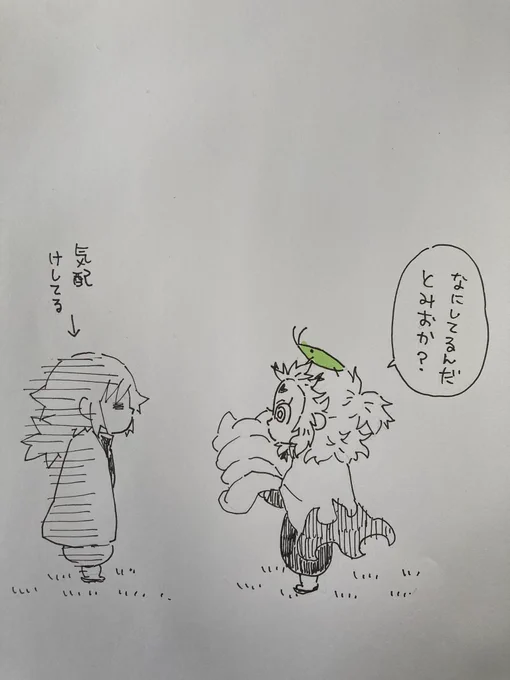 なにしてるんだ
とみおか?
気配
けしてる